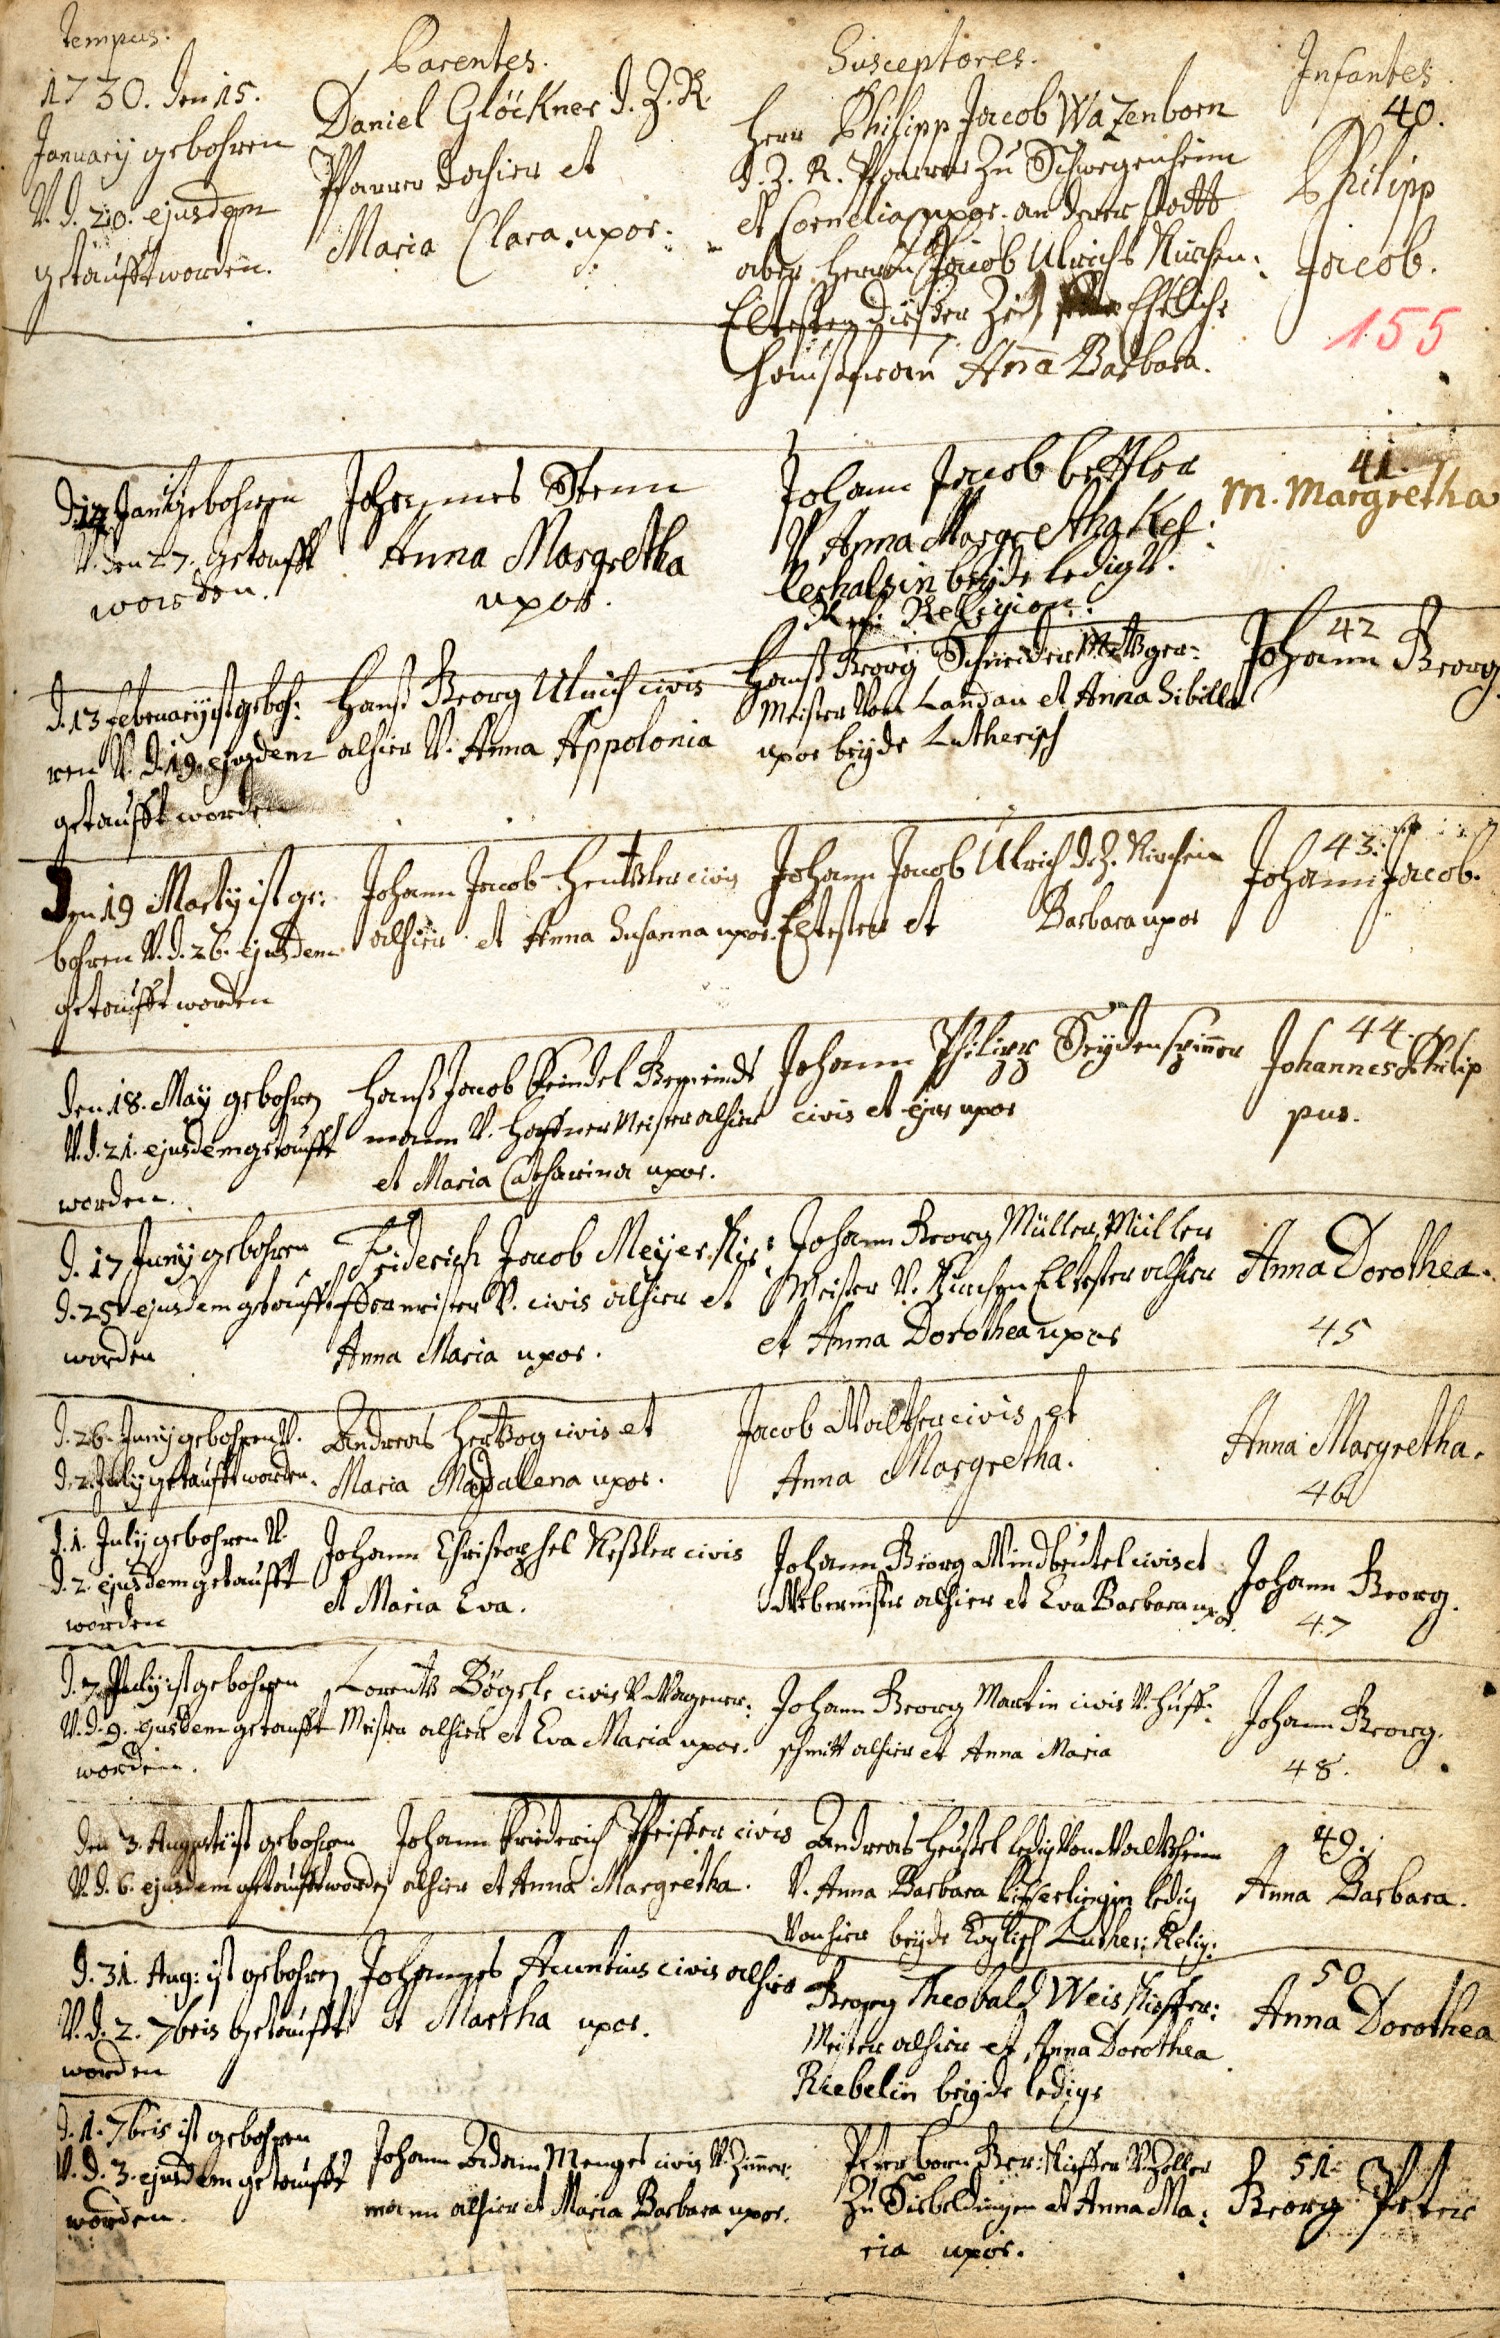 Tempus.
Parentes.
Susceptores.
Infantes.
1730. den 15.
January gebohren
V. d. 20. ejusdem
getaufft worden.
Daniel Glöckner d. Z. R.
Pfarrer dahier et
Maria Clara uxor.
Herr Philipp Jacob Wazenborn
d. Z. R. Pfarrer Zu Schwegenheim
et Cornelia uxor. an deren statt
aber Herrn Jacob Ulrichs Kirchen-
Eltesten dießer Zeit Ehelich
Haußfrau Anna Barbara.
40.
Philipp
Jacob.
155
gebohren
V. den 27. getaufft
worden.
Johannes Stemm
Anna Margretha
uxor.
Johann Jacob
V. Anna Margretha Kes
beyde ledigs.
Ref: Religion.
41.
M. Margretha
d. 13 february ist geboh:
ren V. d. 19. ejusdem
getaufft worden
Hanß Georg Ulrich civis
alhier V. Anna Appolonia
Hanß Georg Schneider Metzger:
Meister Von Landau et Anna Sibilla
uxor beyde Lutherisch
42
Johann Georg
Den 19 Marty ist ge:
bohren V. d. 26. ejusdem
getaufft worden
Johann Jacob Heutzler civis
alhier et Anna Susanna uxor.
Johann Jacob Ulrich d. Z. Kirchen
Eltester et Barbara uxor
43.
Johann Jacob.
den 18. May gebohren
V. d. 21. ejusdem getaufft
worden.
Hanß Jacob Gemeinds
mann V. Haffner Meister alhier
et Maria Catharina uxor.
Johann Philipp Seydenspinner
civis et ejus uxor
44.
Johannes Philip
pus.
d. 17 Juny gebohren
d. 25 ejusdem getaufft
worden
Friderich Jacob Meyer Kie:
ffermeister V. civis alhier et
Anna Maria uxor.
Johann Georg Müller, Müller
Meister V. Kirchen Eltester alhier
et Anna Dorothea uxor
Anna Dorothea.
45
d. 26. Juny gebohren V.
d. 2. July getaufft worden.
Andreas Hertzog civis et
Maria Magdalena uxor.
Jacob Walther civis et
Anna Margretha.
Anna Margretha.
46
d. 1. July gebohren V.
d. 2. ejusdem getaufft
worden
Johann Christophel Keßler civis
et Maria Eva.
Johann Georg Windbeutel civis et
Webermstr alhier et Eva Barbara uxor.
Johann Georg.
47
d. 7 July ist gebohren
V. d. 9. ejusdem getaufft
worden.
Lorentz Bögele civis V. Wagener:
Meister alhier et Eva Maria uxor.
Johann Georg Martin civis V. Huff:
schmitt alhier et Anna Maria
Johann Georg.
48.
den 3. Augusti ist gebohren
V. d. 6. ejusdem getaufft worden
Johann Friederich Pfeiffer civis
alhier et Anna Margretha.
Andreas ledig Von
V. Anna Barbara ledig
Von hier beyde Evglisch Luther: Relig:
49.
Anna Barbara.
d. 31. Aug: ist gebohren
V. d. 2. 7bris getaufft
worden
Johannes Acuntius civis alhier
et Martha uxor.
Georg Theobald Weis Kieffer:
Meister alhier et Anna Dorothea
Riebelin beyde ledige
50
Anna Dorothea
d. 1. 7bris ist gebohren
V. d. 3. ejusdem getaufft
worden.
Johann Adam Menges civis V. Zimmer:
mann alhier et Maria Barbara uxor.
Peter Born Ger: Kieffer V. Zoller
Zu Siebeldingen et Anna Ma:
ria uxor.
51.
Georg Peter